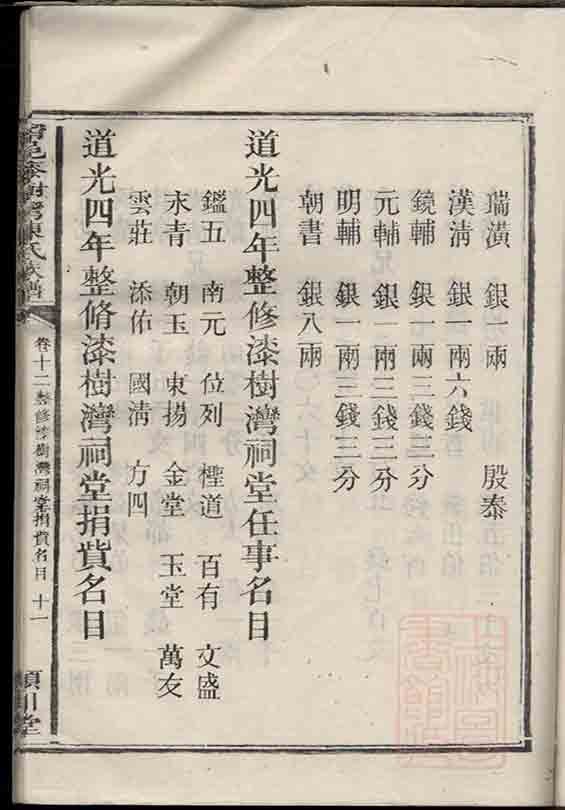 瑞潢 銀一兩 殷泰
漢淸 銀一兩六錢
鏡輔 銀一兩三錢三分
元輔 銀一兩三錢三分
明輔 銀一兩三錢三分
朝書 銀八兩
道光四年整修漆樹灣祠堂任事名目
鑑五 南元 位列 桱道 百有 文盛
永青 朝玉 東揚 金堂 玉堂 萬友
雲莊 添佑 國淸 方四
道光四年整脩漆樹灣祠堂捐貲名目
漆樹灣陳氏族譜
卷十二 整修漆樹灣祠堂捐貲名目 十一
潁川堂